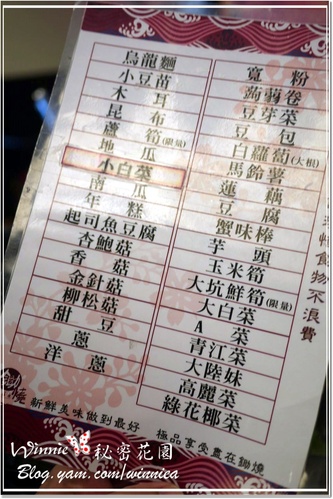 烏龍麵
小豆苗
木耳
昆布
蘆筍(限量)
地瓜
小白菜
南瓜
年糕
起司魚豆腐
杏鮑菇
香菇
金針菇
柳松菇
甜豆
蔥
洋蔥
寬粉
蒟蒻卷
豆芽菜
豆包
白蘿蔔(大根)
馬鈴薯
蓮藕
豆腐
蟹味棒
芋頭
玉米筍
大坑鮮筍(限量)
大白菜
A菜
青江菜
大陸妹
高麗菜
綠花椰菜
惜食物不浪費
鋤燒
新鮮美味做到最好
極品享受盡在鋤燒
Winnie秘密花園
Blog.yam.com/winniea